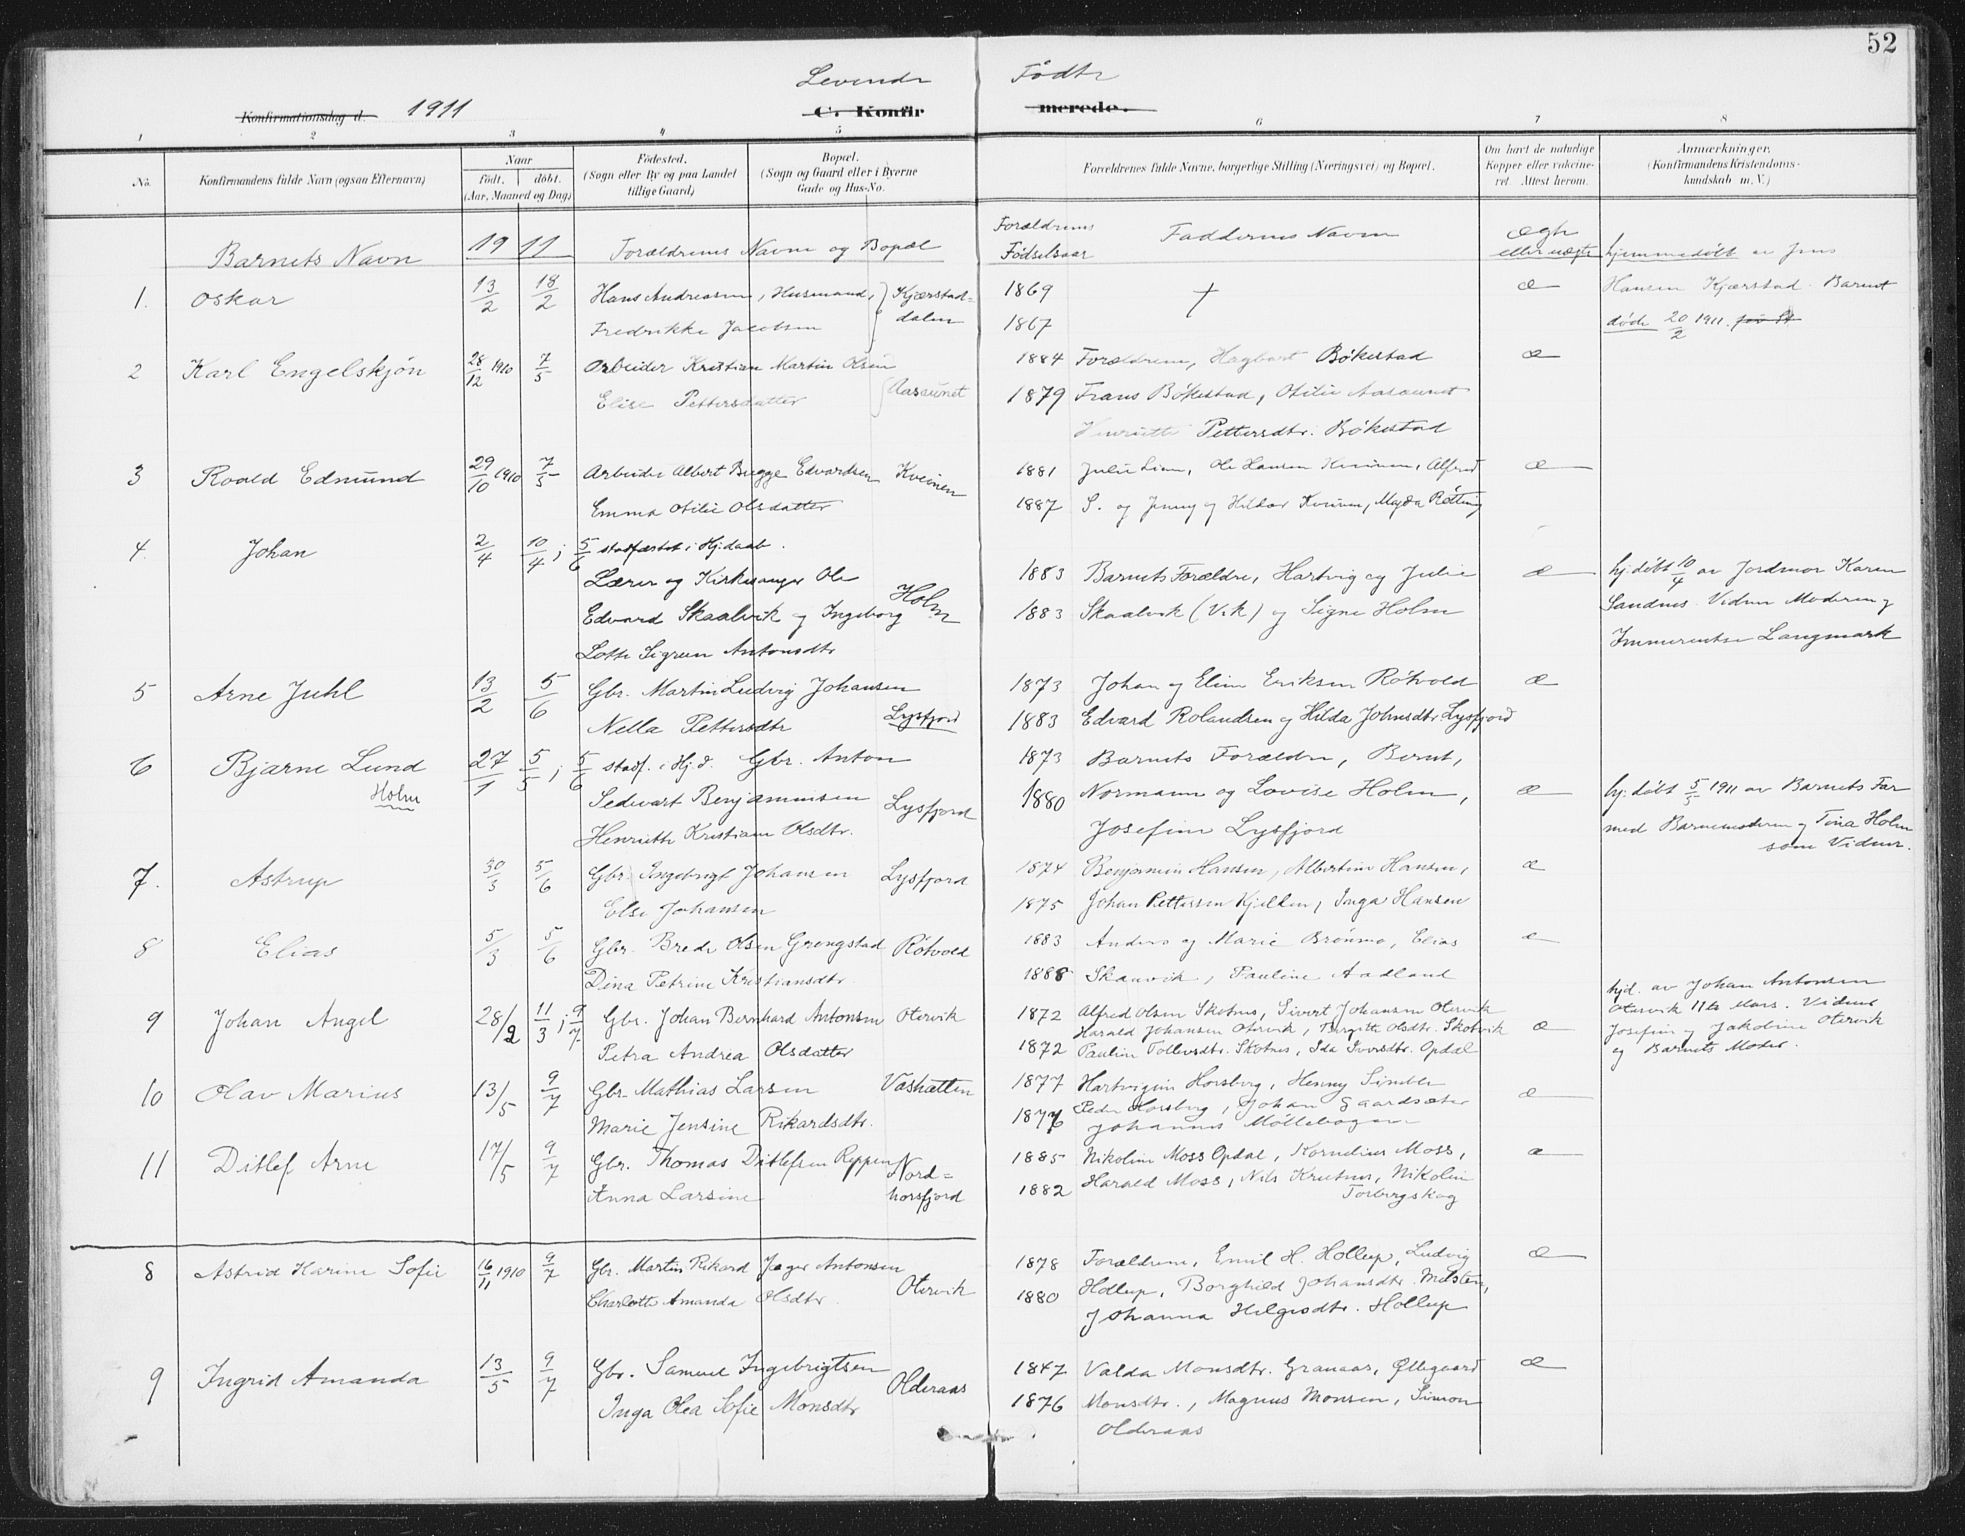 52
Levende Fødte
Konfirmationsdag d. 1911 C. Konfirmerede.
1 2 3 4 5 6 7 8
No. Konfirmandens fulde Navn (ogsaa Efternavn) Naar født, døbt. (Aar, Maaned og Dag) Fødested. (Sogn eller By og paa Landet tillige Gaard) Bopæl. (Sogn og Gaard eller i Byerne Gade og Hus-No. Forældrenes fulde Navne, borgerlige Stilling (Næringsvei) og Bopæl. Om havt de naturlige Kopper eller vakcineret. Attest herom. Anmærkninger. (Konfirmandens Kristendomskundskab m. V.)
Barnets Navn 19 11 Forældrenes Navne og Bopæl Forældrenes Fødselsaar Faddernes Navne ægte eller uægte
hjemmedøbt av Jens
1. Oskar 13/2 18/2 Hans Andreassen, Husmand, Kjærstad= 1869 + æ Hansen Kjærstad. Barnet
Fredrikke Jacobsen dalen 1867 døde 20/2 1911.
2 Karl Engelskjøn 28/12 1910 7/5 Arbeider Kristian Martin Olsen 1884 Forældrene, Hagbart Bøkestad æ
Elise Pettersdatter Aasaunet 1879 Frans Bøkestad, Otilie Aasaunet
Henriette Pettersdtr. Bøkestad
3 Roald Edmund 29/10 1910 7/5 Arbeider Albert Bugge Edvardsen Kveinen 1881 Julie Lian, Ole Hansen Kveinen, Alfred æ
Emma Otilie Olsdatter 1887 S. og Jenny og Hildor Kveinen, Magda Røtting
4. Johan 2/4 10/4; 5/6 stadfæstet i Hj.daab.
Lærer og Kirkesanger Ole 1883 Barnets Forældre, Hartvig og Julie æ hj. døbt 10/4 av Jordmor Karen
Edvard Skaalvik og Ingeborg Holm 1883 Skaalvik (Vik) og Signe Holm Sandnes. Vidner Moderen og
Lotte Sigrun Antonsdtr Immerentse Langmark
5 Arne Juhl 13/2 5/6 Gbr. Martin Ludvig Johansen 1873 Johan og Eline Eriksen Røtvold æ
Nella Pettersdtr Lysfjord 1883 Edvard Rolandsen og Hilda Johnsdtr. Lysfjord
6 Bjarne Lund 27/1 5/5; 5/6 stadf. i Hj.d. Gbr. Anton 1873 Barnets Forældre, Bernt,
Holm Sedevart Benjaminsen Lysfjord 1880 Normann og Lovise Holm, æ hj: døbt 5/5 1911 av Barnets Far
Henriette Kristiane Olsdtr. Josefine Lysfjord med Barnemoderen og Tina Holm
som Vidner.
7. Astrup 30/3 5/6 Gbr. Ingebrigt Johansen Lysfjord 1874 Benjamin Hansen, Albertine Hansen, æ
Else Johansen 1875 Johan Pettersen Kjelken, Inga Hansen
8 Elias 5/3 5/6 Gbr. Brede Olsen Grongstad Røtvold 1883 Anders og Marie Brønmo, Elias æ
Dina Petrine Kristiansdtr. 1888 Skaavik, Pauline Aadland
hjd. av Johan Antonsen
9 Johan Angel 28/2 11/3; 9/7 Gbr. Johan Bernhard Antonsen Otervik 1872 Alfred Olsen Skotnes, Sivert Johansen Otervik Otervik 11te Mars. Vidner
Harald Johansen Otervik, Bergitte Olsdtr. Skotvik æ Josefine og Jakobine Otervik
Petra Andrea Olsdatter 1872 Pauline Tollevsdtr. Skotnes, Ida Iversdtr. Opdal og Barnets Moder.
10 Olav Marius 13/5 9/7 Gbr. Mathias Larsen Vashatten 1877 Hartvigine Horsberg, Henny Simble æ
Marie Jensine Rikardsdtr. 1876 Peder Horsberg, Johan Gaardsæter
Johannes Møllebogen
11 Ditlef Arne 17/5 9/7 Gbr. Thomas Ditlefsen Reppen Nord= 1885 Nikoline Moss Opdal, Kornelius Moss, æ
Anna Larsine horsfjord 1882 Harald Moss, Nils Krutnes, Nikolin
Torbergskog
8 Astrid Karine Sofie 16/11 1910 9/7 Gbr. Martin Rikard Jæger Antonsen 1878 Forældrene, Emil H. Hollup, Ludvig æ
Charlotte Amanda Olsdtr. Otervik 1880 Hollup, Borghild Johansdtr. Melsten,
Johanna Helgesdtr. Hollup
9 Ingrid Amanda 13/5 9/7 Gbr. Samuel Ingebrigtsen Olderaas 1847 Valda Monsdtr. Granaas, Øllegaard æ
Inga Olea Sofie Monsdtr 1876 Monsdtr., Magnus Monsen, Simon
Olderaas